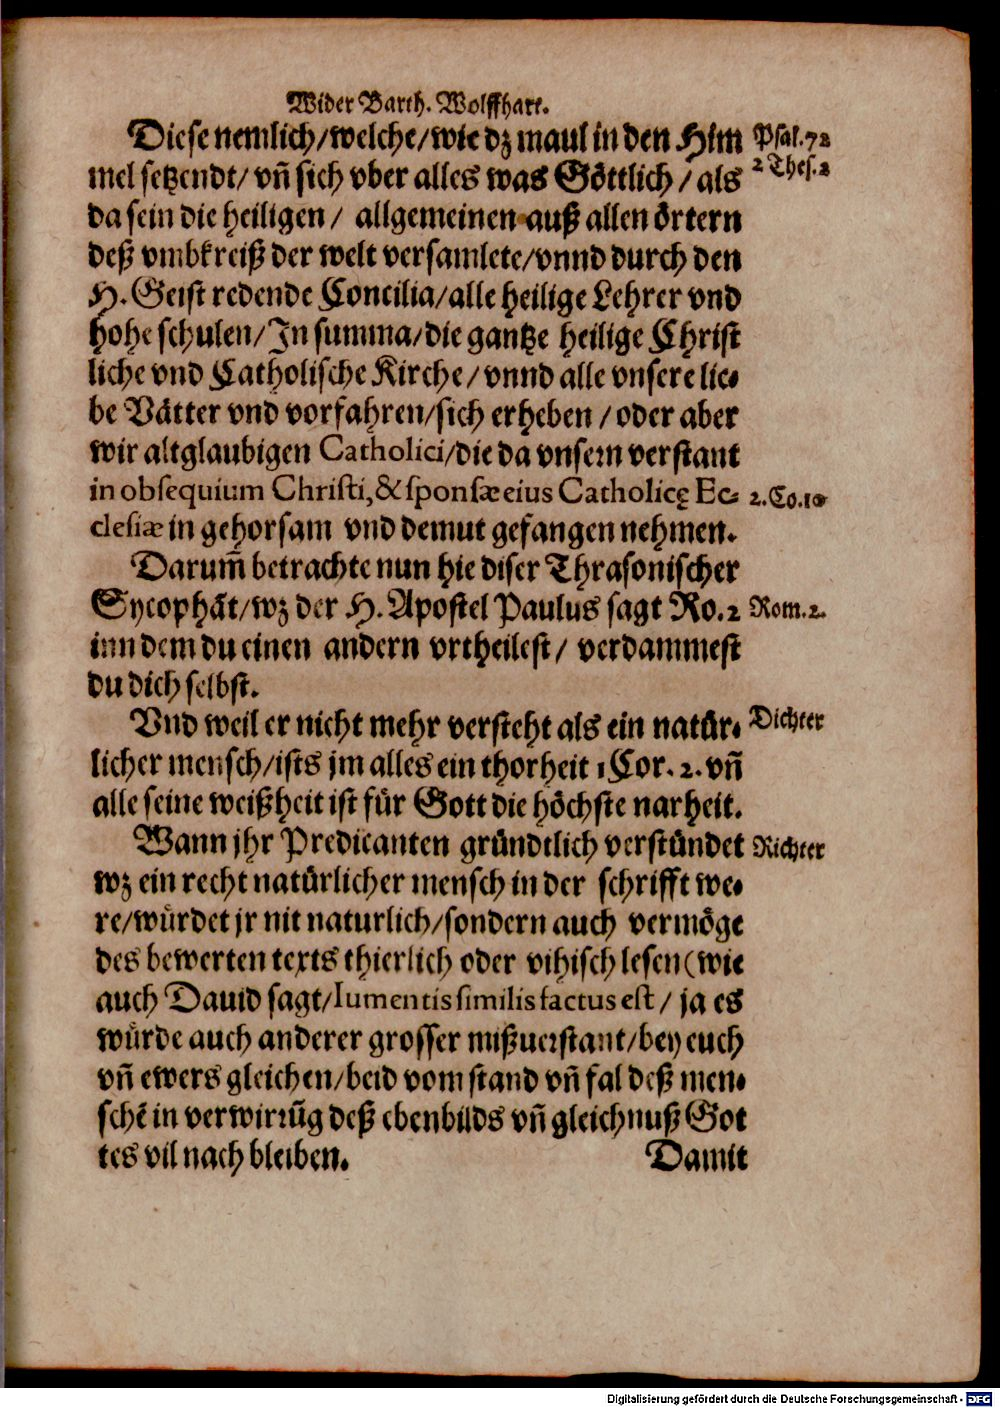 Wider Barth. Wolffhart.
Diese nemlich/welche/wie dz maul in den Him
Psal.72
mel setzendt/ vñ sich vber alles was Göttlich/ als
2 Thes.2
da sein die heiligen/ allgemeinen auß allen örtern
deß vmbkreiß der welt versamlete/vnnd durch den
H. Geist redende Concilia/alle heilige Lehrer vnd
hohe schulen/In summa/die gantze heilige Christ
liche vnd Catholische Kirche/vnnd alle vnsere lie-
be Vätter vnd vorfahren/sich erheben/oder aber
wir altglaubigen Catholici/die da vnsern verstant
in obsequium Christi, & sponsæ eius Catholicę Ec-
2.Co.10
clesiæ in gehorsam vnd demut gefangen nehmen.
Darum̃ betrachte nun hie diser Thrasonischer
Sycophãt/wz der H. Apostel Paulus sagt Ro.2
Rom.2.
inn dem du einen andern vrtheilest/ verdammest
du dich selbst.
Vnd weil er nicht mehr versteht als ein natür-
Dichter
licher mensch/ists jm alles ein thorheit 1 Cor. 2. vñ
alle seine weißheit ist für Gott die höchste narheit.
Wann jhr Predicanten gründtlich verstündet
Richter
wz ein recht natürlicher mensch in der schrifft we-
re/würdet jr nit naturlich/sondern auch vermöge
des bewerten texts thierlich oder vihisch lesen (wie
auch Dauid sagt/Iumentis similis factus est/ ja es
würde auch anderer grosser mißuerstant/bey euch
vñ ewers gleichen/beid vom stand vñ fal deß men-
schẽ in verwirrũg deß ebenbilds vñ gleichnuß Got
tes vil nach bleiben.
Damit
Digitalisierung gefördert durch die Deutsche Forschungsgemeinschaft - DFG